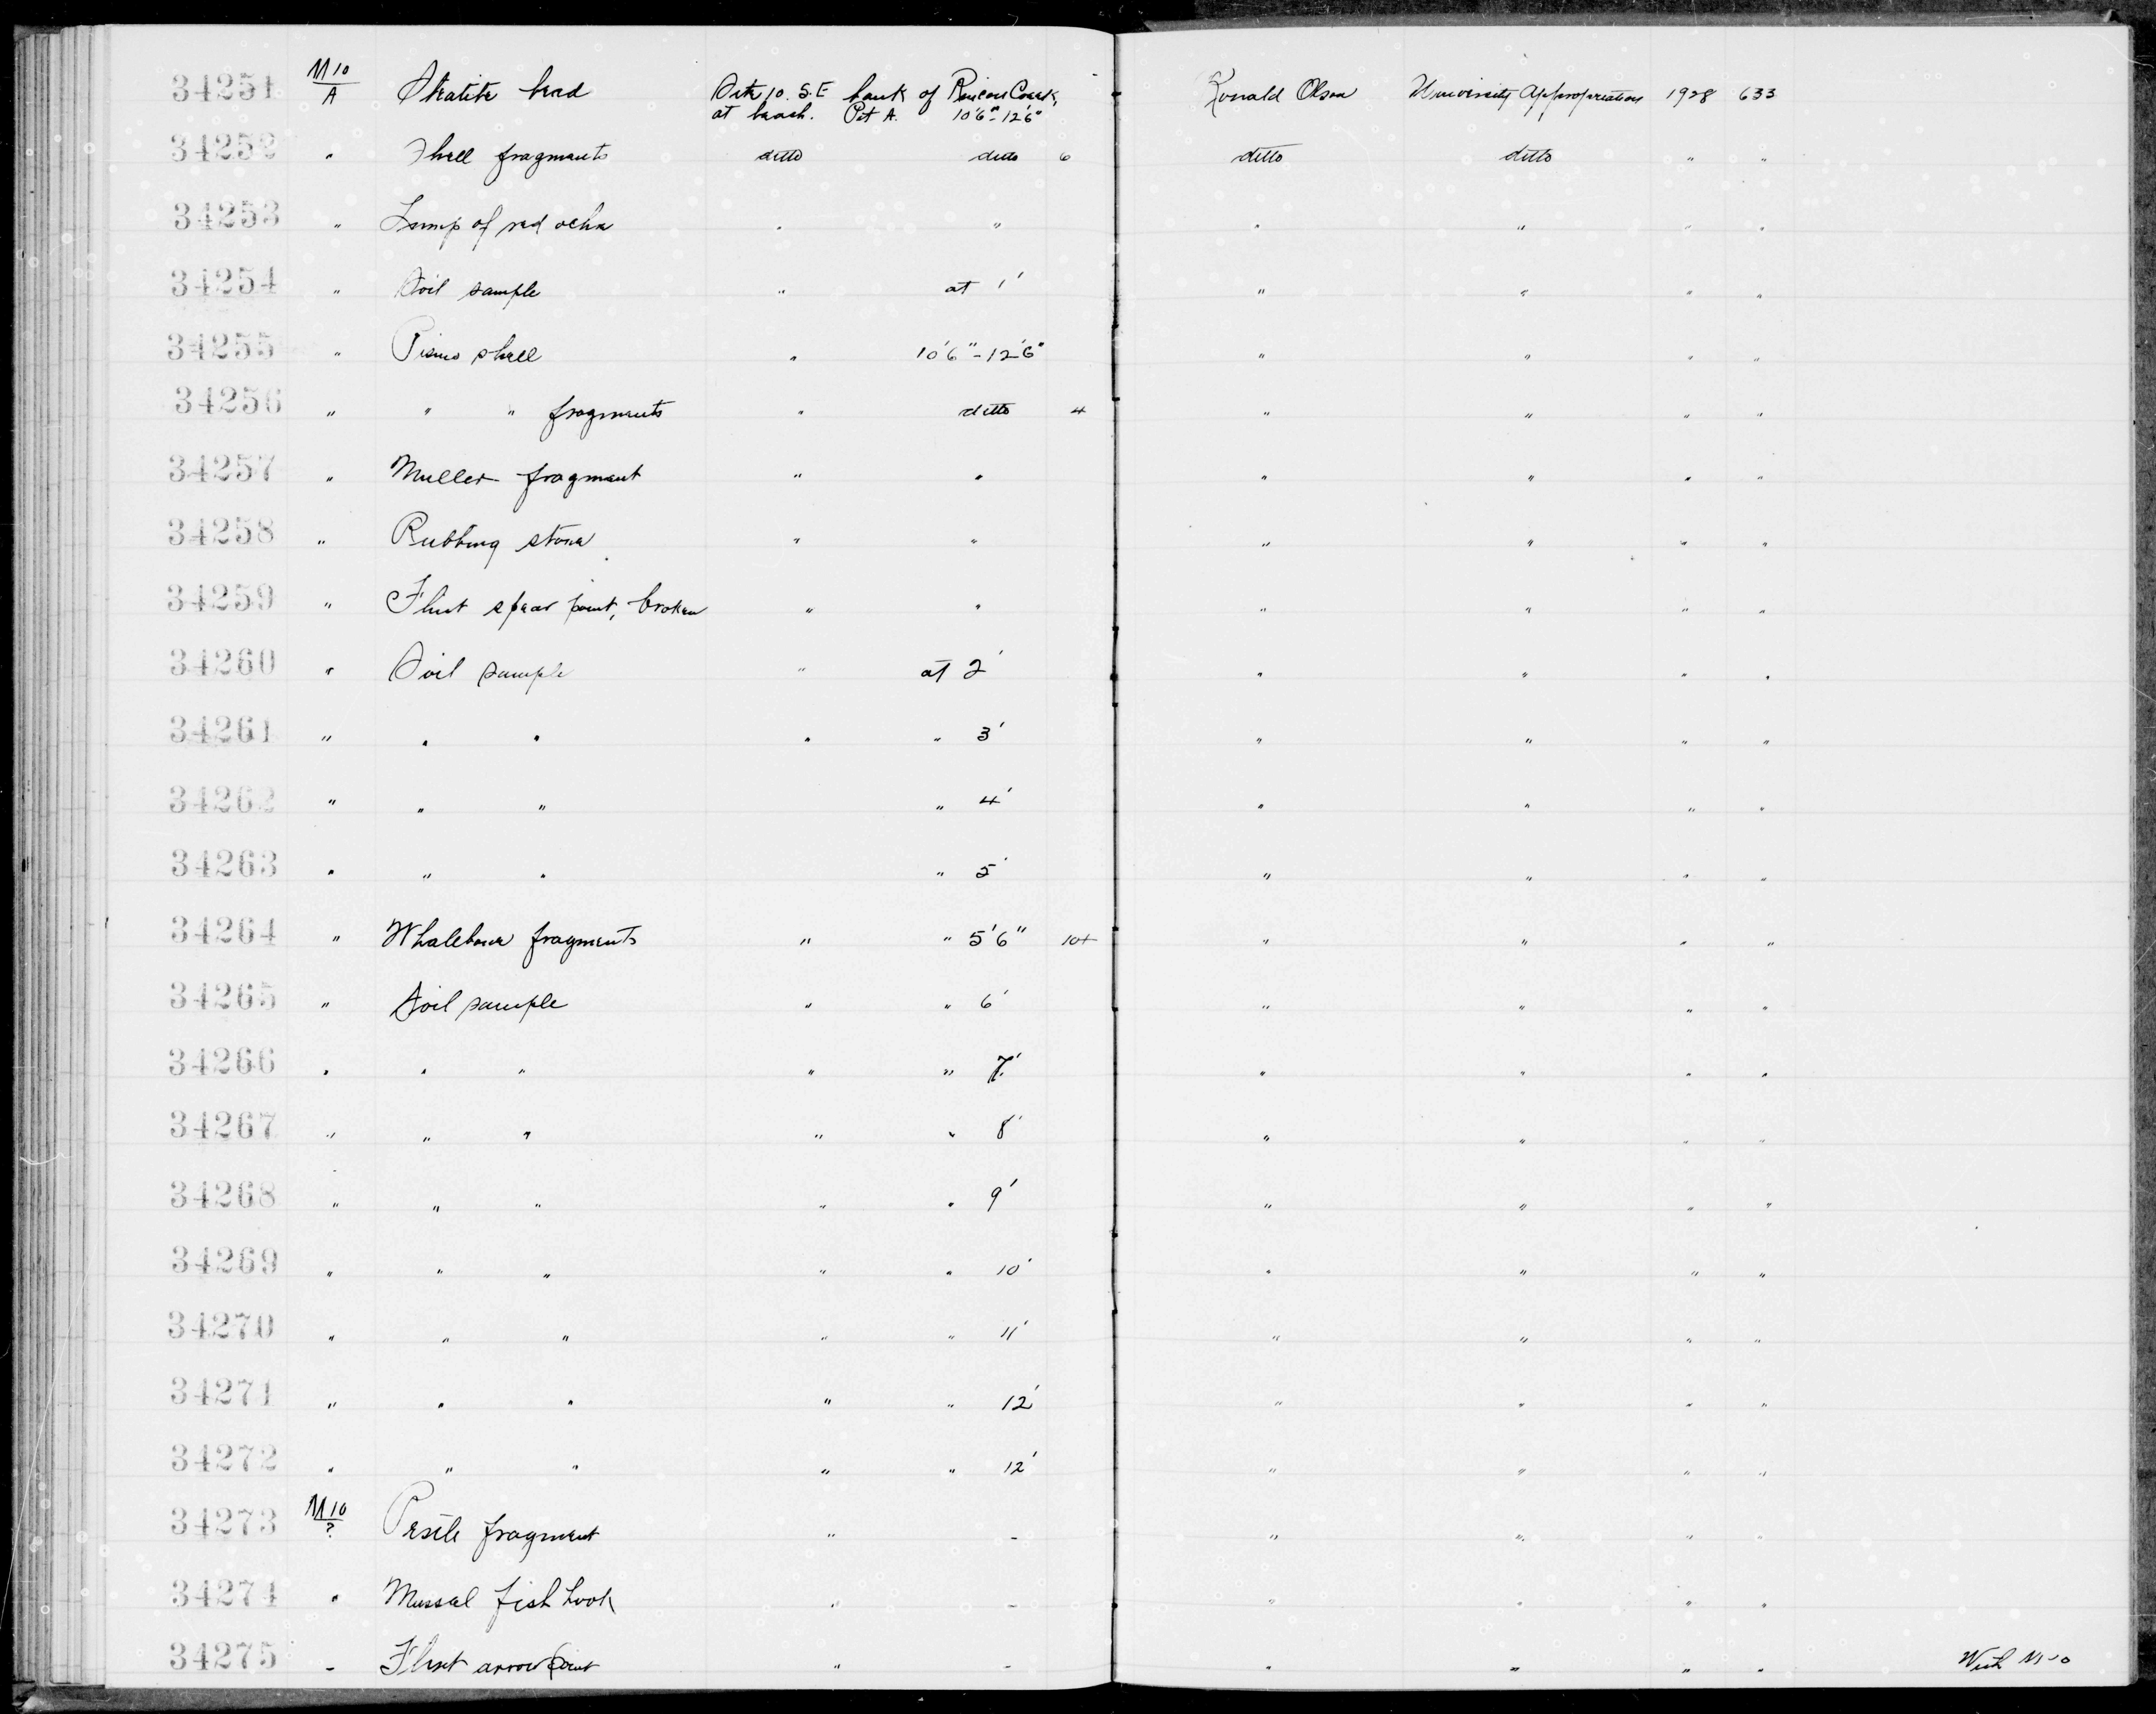 34251 M10/A Steatite bead Site 10. S.E bank of Rincon Creek, Ronald Olson University Appropriation 1928 633
at beach. Pit A. 10'6"-12'6"
34252 " Shell fragments ditto ditto 6 ditto ditto " "
34253 " Lump of red ochre " " " " " "
34254 " Soil sample " at 1' " " " "
34255 " Pismo shell " 10'6"-12'6" " " " "
34256 " " " fragments " ditto 4 " " " "
34257 " Muller fragment " " " " " "
34258 " Rubbing stone " " " " " "
34259 " Flint spear point, broken " " " " " "
34260 " Soil sample " at 2' " " " "
34261 " " " " " 3' " " " "
34262 " " " " 4' " " " "
34263 " " " " 5' " " " "
34264 " Whalebone fragments " " 5'6" 10+ " " " "
34265 " Soil sample " " 6' " " " "
34266 " " " " " 7' " " " "
34267 " " " " " 8' " " " "
34268 " " " " " 9' " " " "
34269 " " " " " 10' " " " "
34270 " " " " " 11' " " " "
34271 " " " " " 12' " " " "
34272 " " " " " 12' " " " "
34273 M10/? Pestle fragment " - " " " "
34274 " Mussel fish hook " - " " " "
34275 - Flint arrow point " - " " " " With